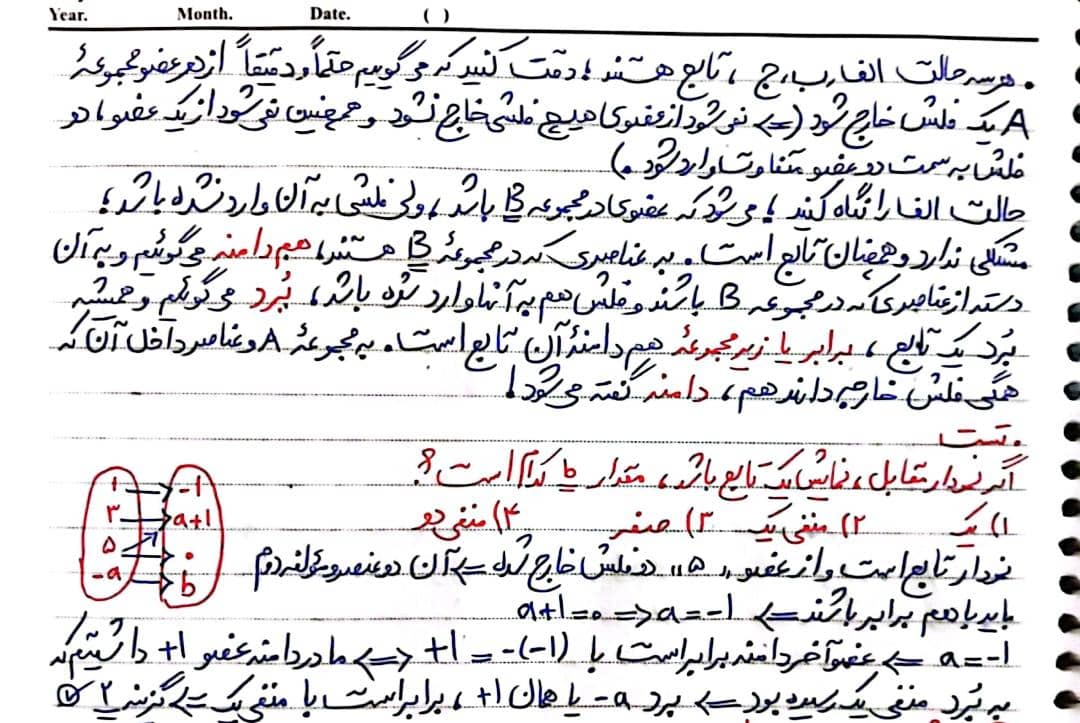 Year. Month. Date. ( )
. هر سه حالت الف، ب، ج ، تابع هستند! دقت کنید که می گوییم حتماً و دقیقاً از هر عضو مجموعهٔ
A یک فلش خارج شود (⇐ نمی شود از عضوی هیچ فلشی خارج نشود و همچنین نمی شود از یک عضو، دو
فلش به سمت دو عضو متفاوت وارد شود.)
حالت الف را نگاه کنید! می شود که عضوی در مجموعه B باشد، ولی فلشی به آن وارد نشده باشد؛
مشکلی ندارد و همچنان تابع است. به عناصری که در مجموعهٔ B هستند، هم دامنه می گوئیم و به آن
دسته از عناصری که در مجموعه B باشند و فلش هم به آنها وارد شده باشد، بُرد می گوئیم و همیشه
بُرد یک تابع، برابر یا زیر مجموعهٔ هم دامنهٔ آن تابع است. به مجموعهٔ A و عناصر داخل آن که
همگی فلش خارجه دارند هم، دامنه گفته می شود!
. تست
اگر نمودار مقابل، نمایش یک تابع باشد، مقدار b کدام است؟
۱) یک ۲) منفی یک ۳) صفر ۴) منفی دو
۱ → -۱
۳ → a+۱
۵ → ۰
-a → b
نمودار تابع است و از عضو "۵" دو فلش خارج شده ⇐ آن دو عضو مؤلفه دوم
باید با هم برابر باشند ⇐ a+1=0 ⇒ a=-1
a=-1 ⇐ عضو آخر دامنه برابر است با -(-1) = +1 ⇔ ما در دامنه عضو +1 داشتیم که
به بُرد منفی یک رسیده بود ⇐ برد -a یا همان +1، برابر است با منفی یک ⇐ گزینه ۲ ✓